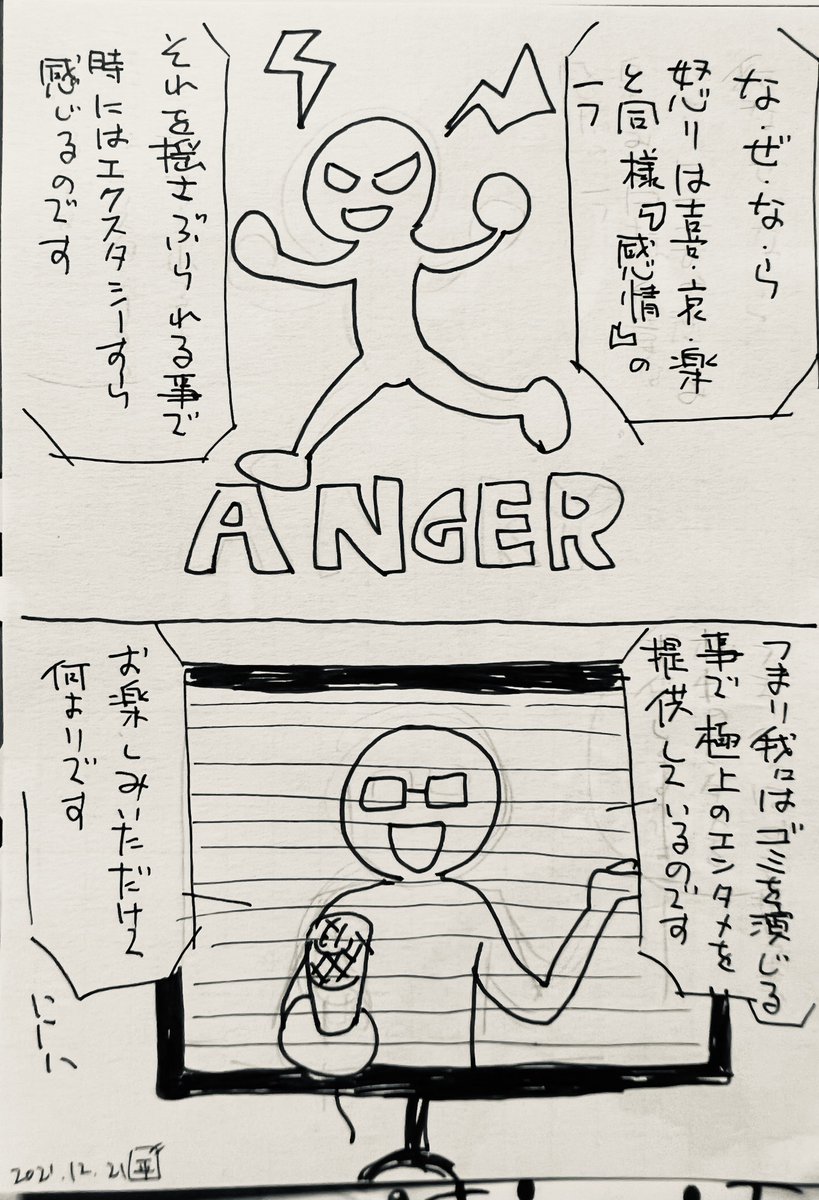 な・ぜ・な・ら
怒りは喜・哀・楽
と同様『感情』の
一つ
それを揺さぶられる事で
時にはエクスタシーすら
感じるのです
ANGER
つまり我々はゴミを演じる
事で極上のエンタメを
提供しているのです
お楽しみいただけて
何よりです
2021.12.21